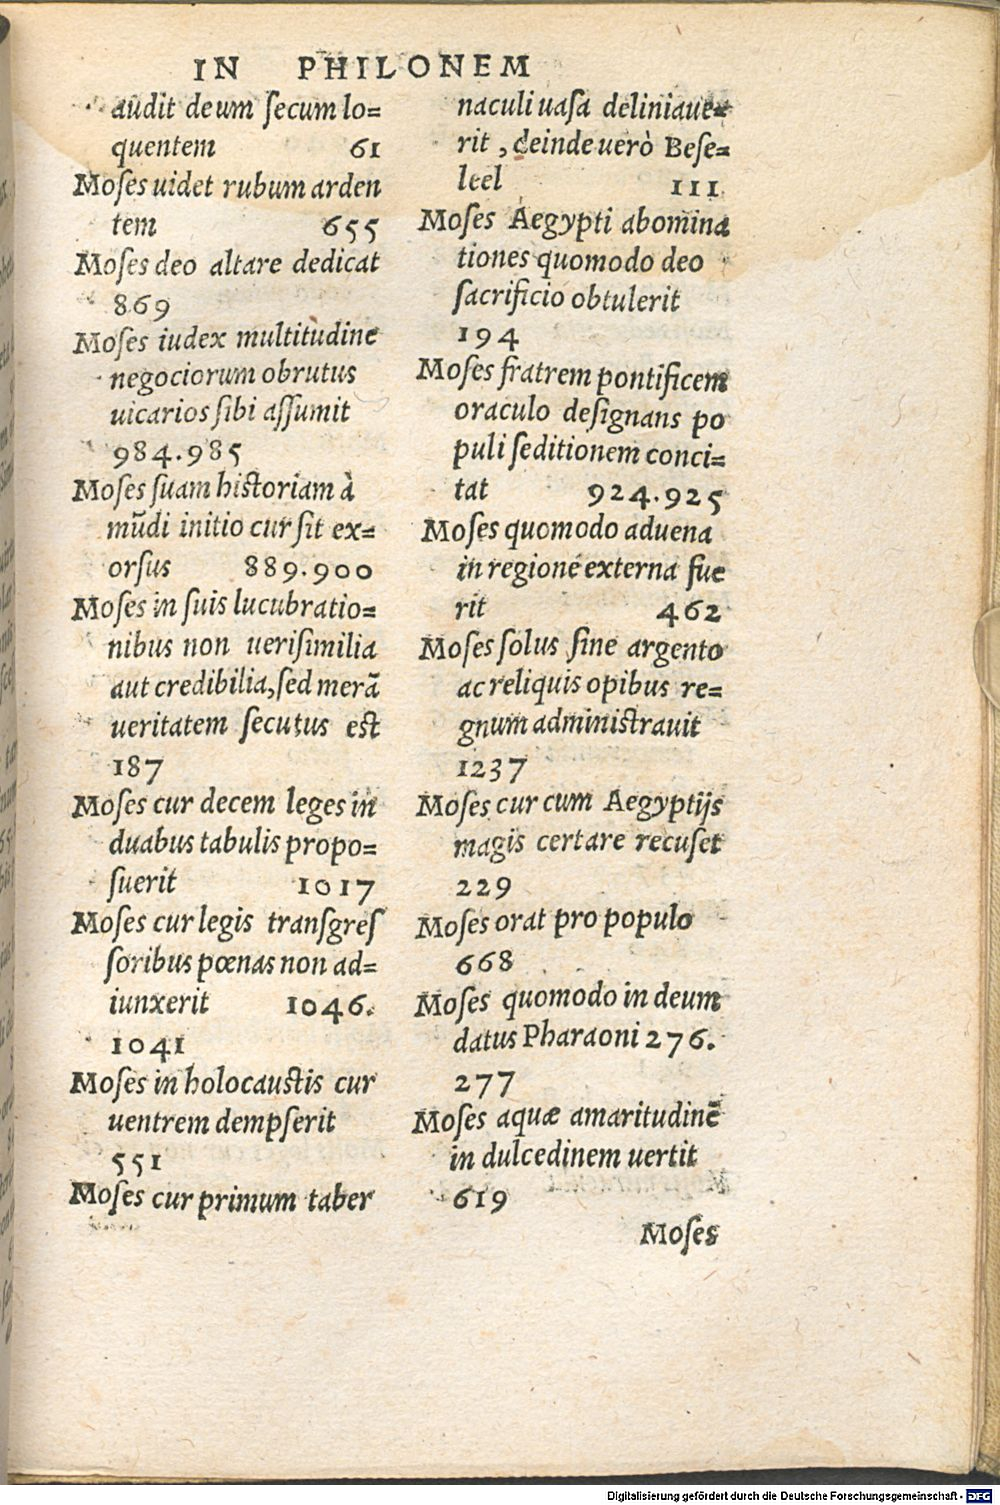 IN PHILONEM
audit deum ſecum lo=
quentem 61
Moſes uidet rubum arden
tem 655
Moſes deo altare dedicat
869
Moſes iudex multitudine
negociorum obrutus
uicarios ſibi aſſumit
984.985
Moſes ſuam hiſtoriam à
mũdi initio cur ſit ex=
orſus 889.900
Moſes in ſuis lucubratio=
nibus non ueriſimilia
aut credibilia, ſed merã
ueritatem ſecutus eſt
187
Moſes cur decem leges in
duabus tabulis propo=
ſuerit 1017
Moſes cur legis tranſgreſ
ſoribus pœnas non ad=
iunxerit 1046.
1041
Moſes in holocauſtis cur
uentrem dempſerit
551
Moſes cur primum taber
naculi uaſa deliniaue=
rit, deinde uerò Beſe=
leel 111
Moſes Aegypti abomina
tiones quomodo deo
ſacrificio obtulerit
194
Moſes fratrem pontificem
oraculo deſignans po
puli ſeditionem conci=
tat 924.925
Moſes quomodo aduena
in regione externa fue
rit 462
Moſes ſolus ſine argento
ac reliquis opibus re=
gnum adminiſtrauit
1237
Moſes cur cum Aegyptijs
magis certare recuſet
229
Moſes orat pro populo
668
Moſes quomodo in deum
datus Pharaoni 276.
277
Moſes aquæ amaritudinẽ
in dulcedinem uertit
619
Moſes
Digitalisierung gefördert durch die Deutsche Forschungsgemeinschaft - DFG